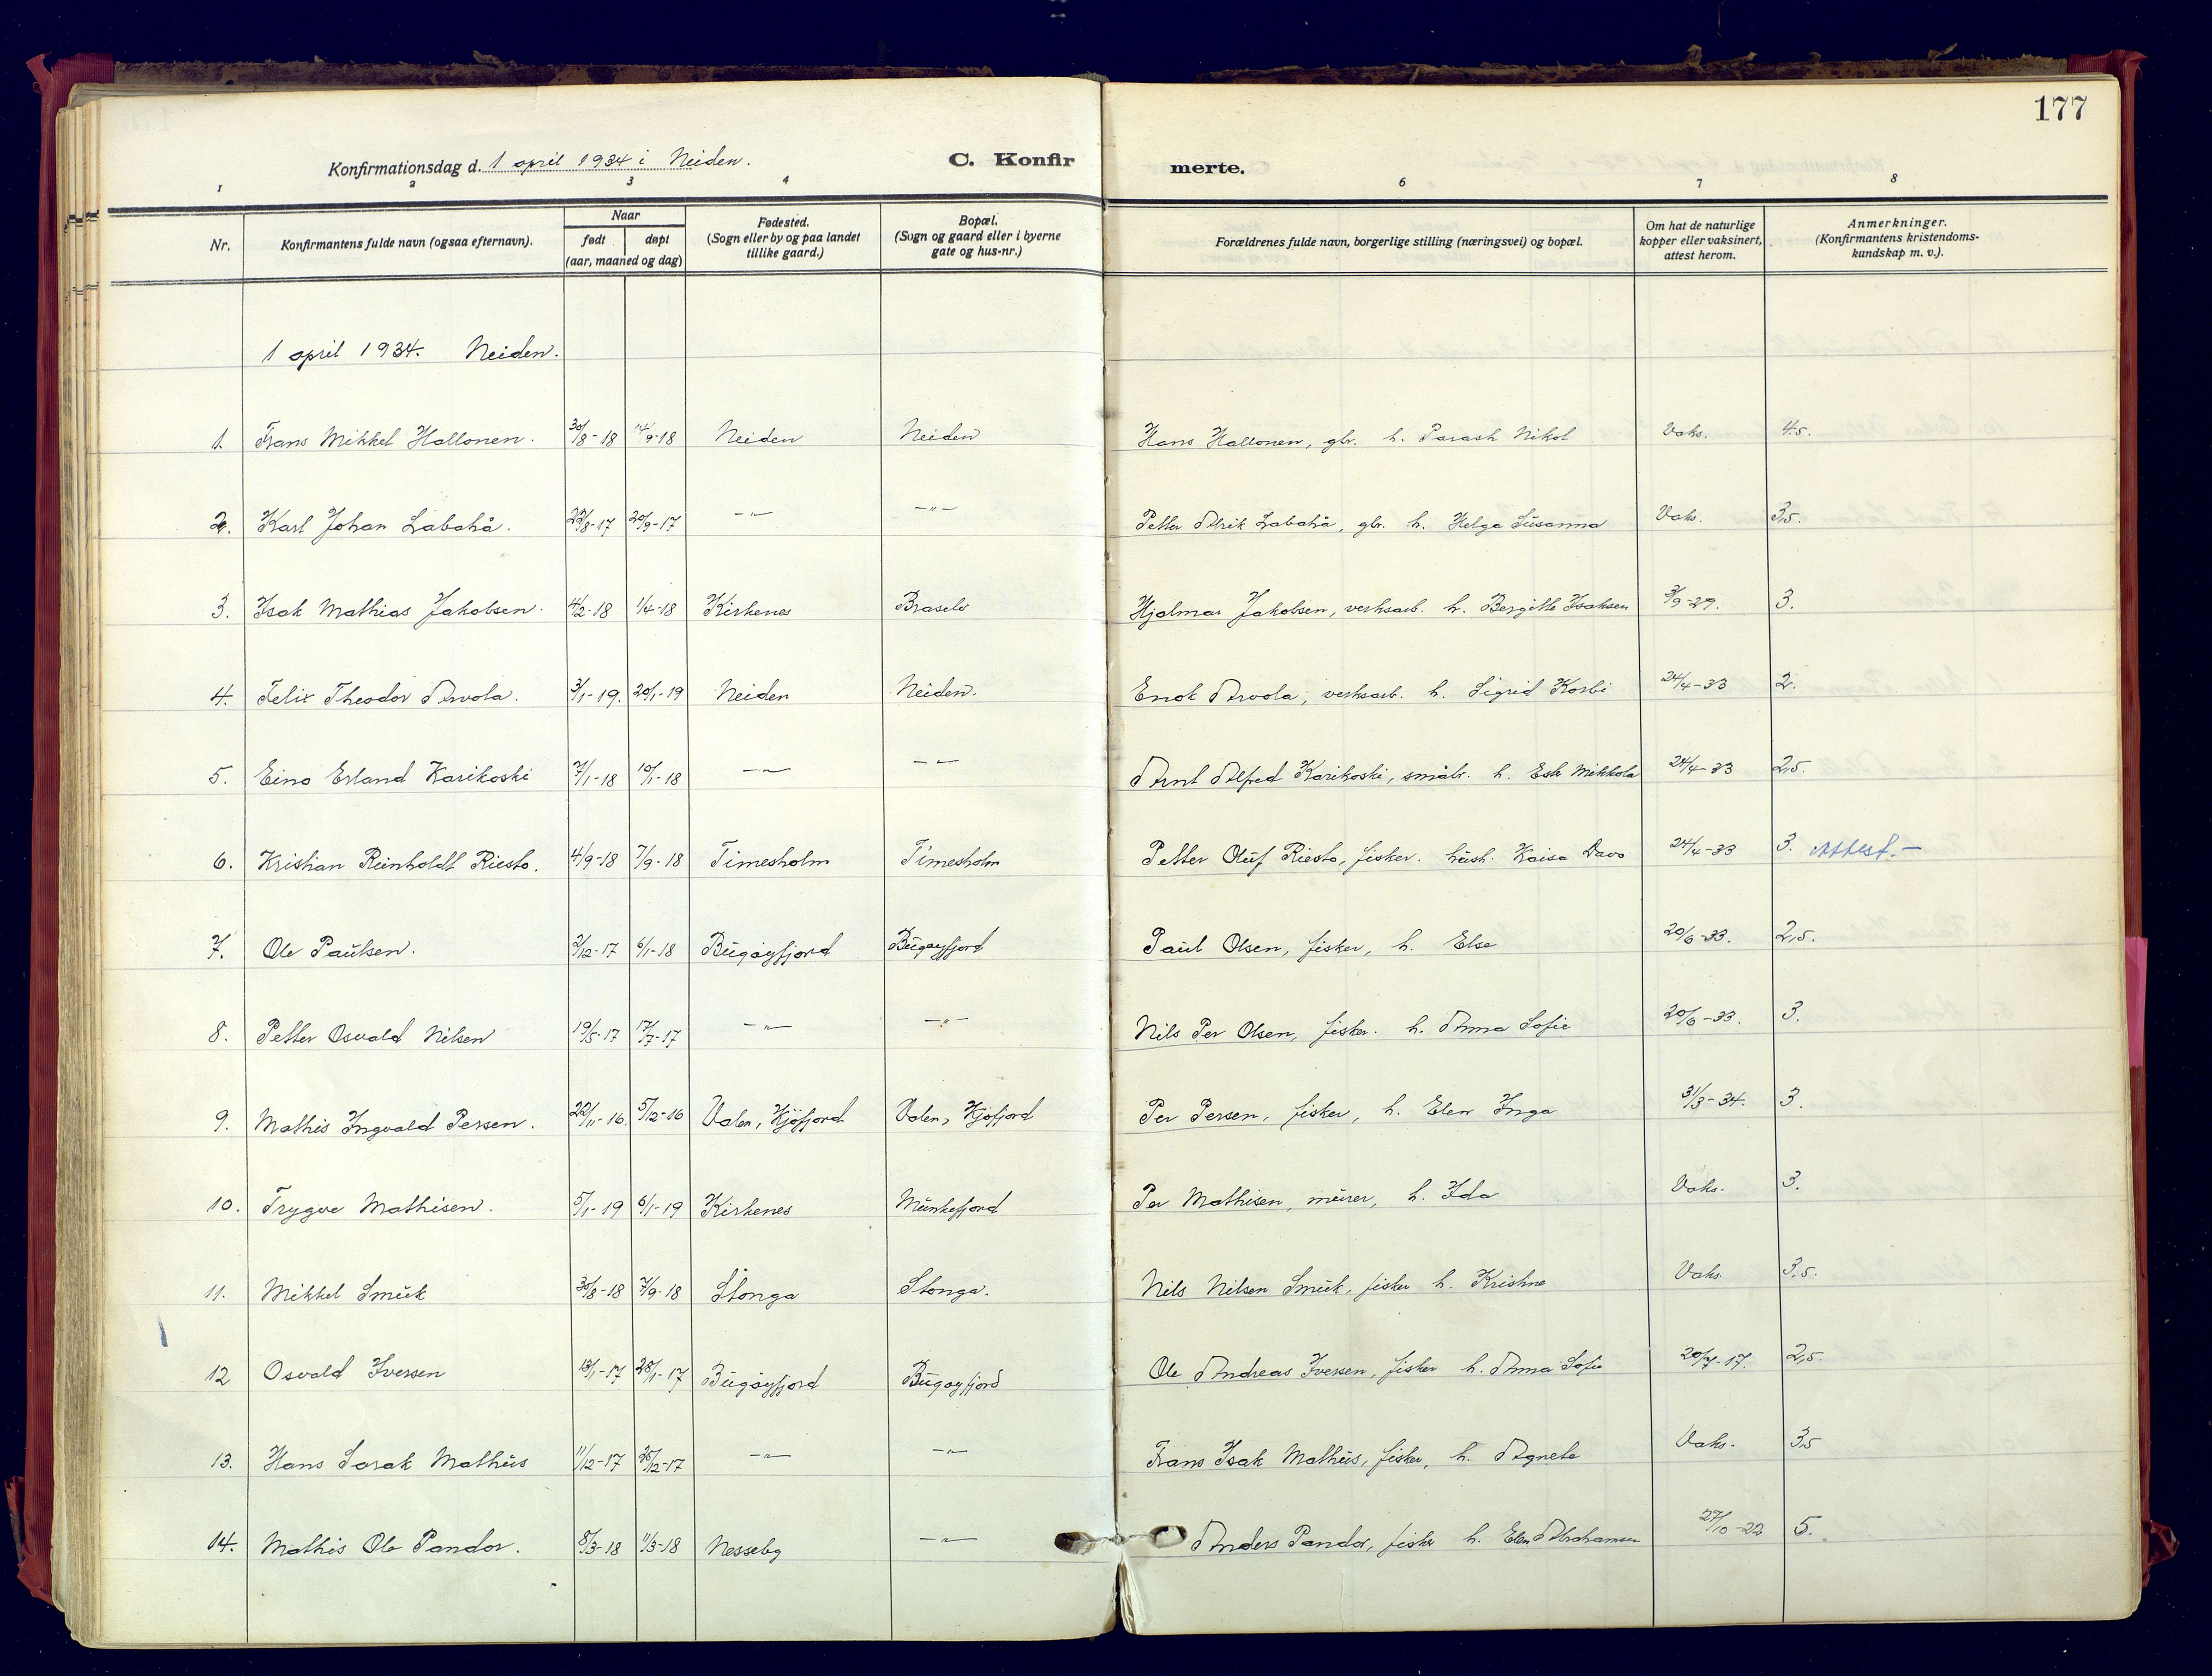 177
Konfirmationsdag d. 1 april 1934 i Neiden. C. Konfirmerte.
1 2 3 4 6 7 8
Nr. Konfirmantens fulde navn (ogsaa efternavn). Naar født døpt (aar, maaned og dag) Fødested. (Sogn eller by og paa landet tillike gaard.) Bopæl. (Sogn og gaard eller i byerne gate og hus-nr.) Forældrenes fulde navn, borgerlige stilling (næringsvei) og bopæl. Om hat de naturlige kopper eller vaksinert, attest herom. Anmerkninger. (Konfirmantens kristendomskundskap m. v.).
1 april 1934. Neiden.
1. Frans Mikkel Hallonen. 30/8-18 14/9-18 Neiden Neiden Hans Hallonen, gbr. h. Parash Nikol Vaks. 4.5.
2. Karl Johan Labahå. 22/8-17 20/9-17 -"- -"- Petter Arik Labahå, gbr. h. Helga Susanna Vaks. 3,5.
3. Isak Mathias Jakobsen. 4/2-18 1/4-18 Kirkenes Braselv Hjalmar Jakobsen, verksarb. h. Bergitte Isaksen 3/9-29. 3.
4. Felix Theodor Arvola. 3/1-19. 20/1-19 Neiden Neiden. Enok Arvola, verksarb. h. Sigrid Korbi 24/4-33 2.
5. Eino Erland Karikoski 7/1-18 10/1-18 -"- -"- Arnt Alfred Karikoski, småbr. h. Mikkola 24/4-33 2,5.
6. Kristian Reinholdt Riesto. 4/9-18 7/9-18 Timesholm Timesholm Petter Oluf Riesto, fisker. hush. Kaisa Davo 24/4-33 3. Attest.-
7. Ole Paulsen. 2/12-17 6/1-18 Bugøyfjord Bugøyfjord Paul Olsen, fisker, h. Elsa 20/6-33. 2,5.
8. Petter Osvald Nilsen 19/5-17 17/7-17 -"- -"- Nils Per Olsen, fisker. h. Anna Sofie 20/6-33. 3.
9. Mathis Ingvald Persen. 22/11-16. 5/12-16 Valen, Kjøfjord Valen, Kjøfjord Per Persen, fisker, h. Elen Inga 31/3-34. 3.
10. Trygve Mathisen. 5/1-19 6/1-19 Kirkenes Munkefjord Per Mathisen, murer, h. Ida Vaks. 3.
11. Mikkel Smuk 30/8-18 7/9-18 Stonga Stonga. Nils Nilsen Smuk, fisker h. Kristine Vaks. 3,5.
12 Osvald Iversen 13/1-17 28/1-17 Bugøyfjord Bugøyfjord Ole Andreas Iversen, fisker h. Anna Sofie 20/7-17. 2,5.
13. Hans Sarak Mathus 11/12-17 25/12-17 -"- -"- Frans Isak Mathus, fisker, h. Agnete Vaks. 3,5
14. Mathis Ole Pandor. 8/3-18 11/3-18 Nesseby -"- Anders Pandor, fisker h. Elen Abrahamsen 27/10-22 5.